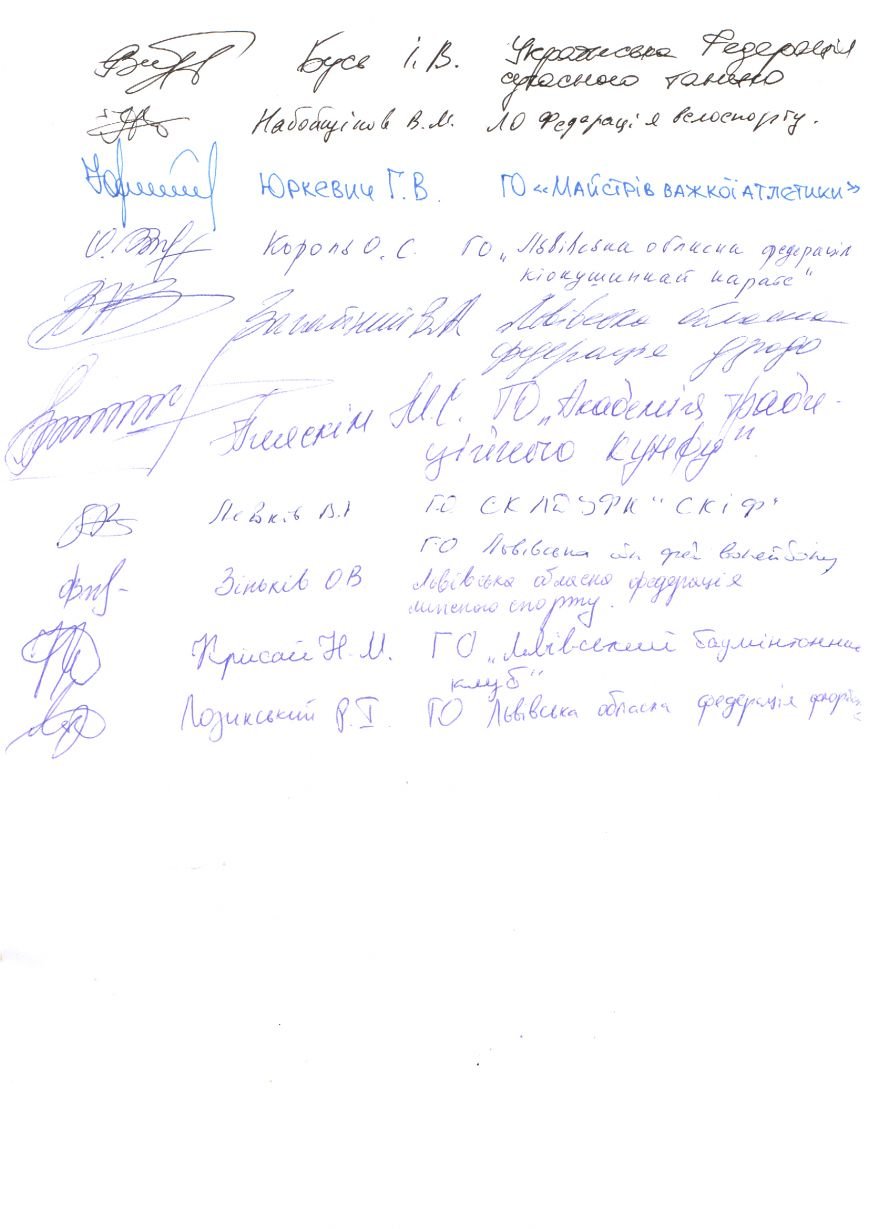 Бусь І.В. Українська Федерація
сучасного танцю
Набойщіков В.М. ЛО Федерація велоспорту.
Юркевич Г.В. ГО «МАЙСТРІВ ВАЖКОЇ АТЛЕТИКИ»
Король О.С. ГО „Львівська обласна федерація
кіокушинкай карате“
В.А Львівська обласна
федерація дзюдо
М.С. ГО „Академія тради-
ційного кунфу“
Левків В.І ГО СК ЛДУФК "СКІФ"
ГО Львівська обл фед волейболу
Зіньків ОВ Львівська обласна федерація
лижного спорту.
Крисай Н.М. ГО „Львівський бадмінтонний
клуб“
Лозинський Р.Т. ГО Львівська обласна федерація